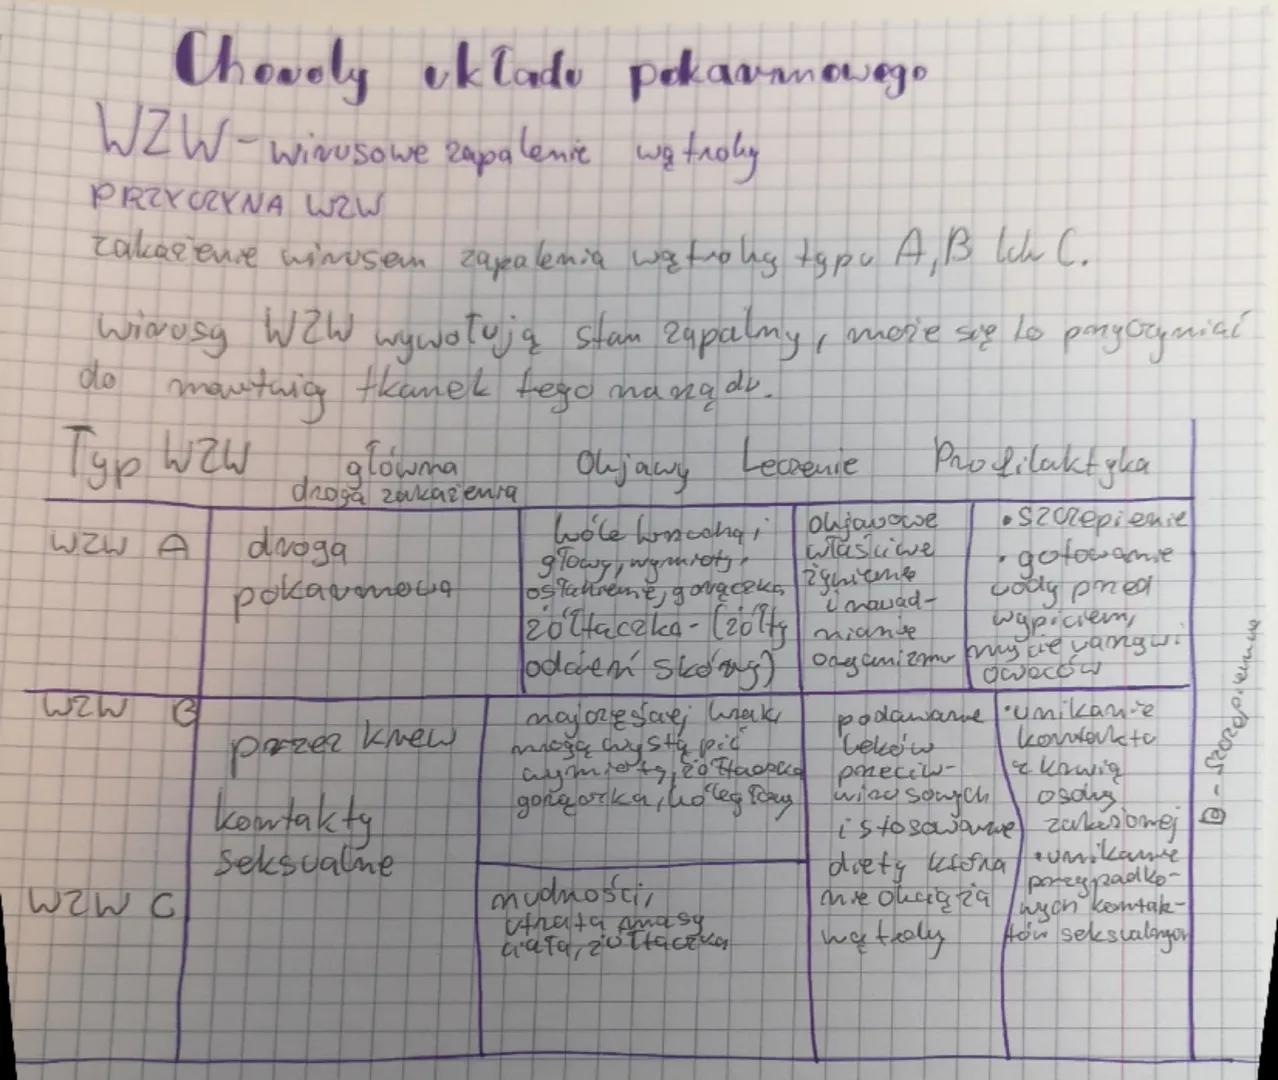 Choroby układu pokarmowego
WZW - wirusowe zapalenie wątroby
PRZYCZYNA WZW
zakażenie wirusem zapalenia wątroby typu A, B lub C.
Wirusy WZW wywołują stan zapalny, może się to przyczyniać
do martwicy tkanek tego narządu.
Typ WZW główna Objawy Leczenie Profilaktyka
droga zakażenia
WZW A
droga
pokarmowa
bóle brzucha i
głowy, wymioty,
osłabienie, gorączka,
żółtaczka - (żółty
odcień skóry)
objawowe
właściwe
żywienie
i nawad-
nianie
organizmu
• szczepienie
• gotowanie
wody przed
wypiciem,
mycie warzyw i
owoców
WZW B
przez krew
kontakty
seksualne
najczęściej brak,
mogą wystąpić
wymioty, żółtaczka
gorączka, bóle głowy
podawanie
leków
przeciw-
wirusowych
i stosowanie
diety która
nie obciąża
wątroby
• unikanie
kontaktu
z krwią
osoby
zakażonej
• unikanie
przypadko-
wych kontak-
tów seksualnych
B - szczepienie
WZW C
nudności,
utrata masy
ciała, żółtaczka